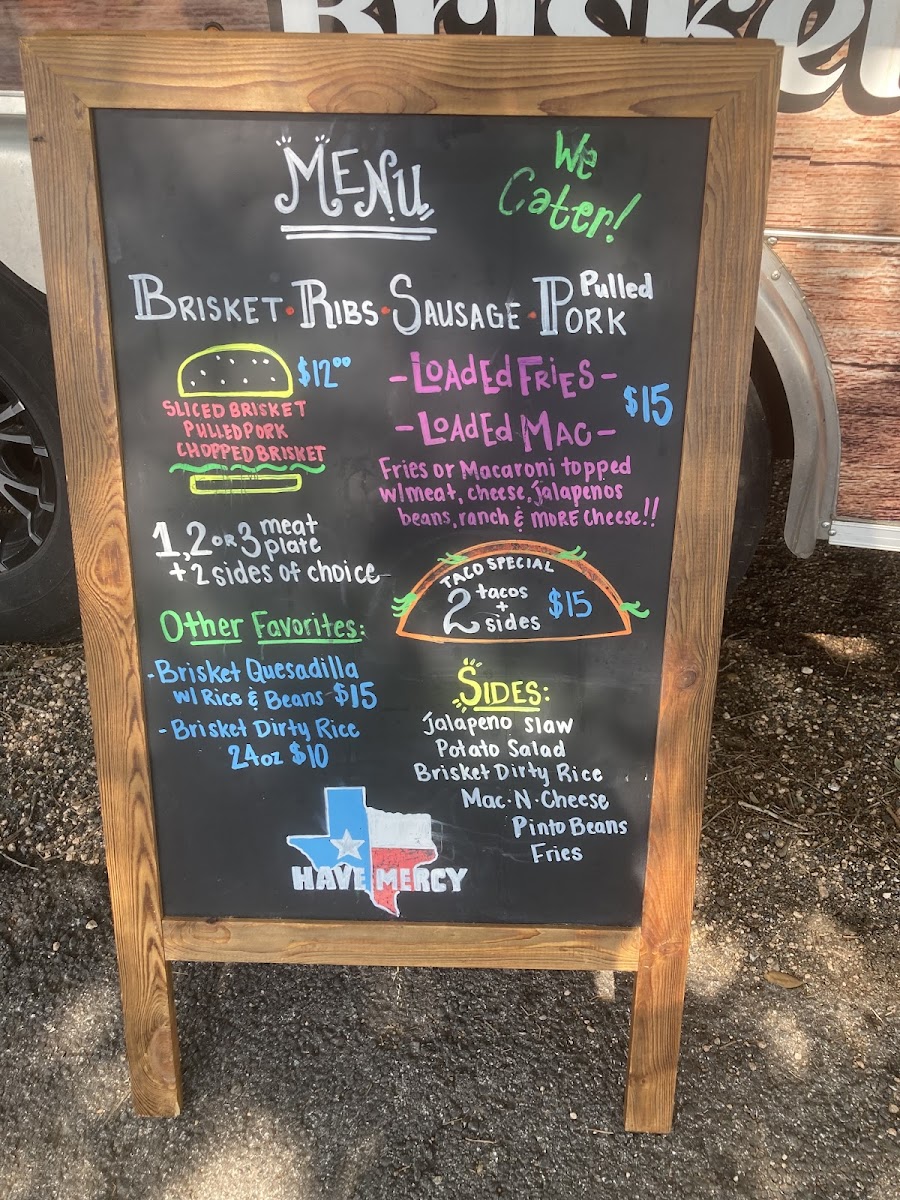 Brisket
MENU
We
Cater!
BRISKET · RIBS · SAUSAGE · Pulled PORK
$12.00
SLICED BRISKET
PULLED PORK
CHOPPED BRISKET
- LOADED FRIES -
- LOADED MAC -
$15
Fries or Macaroni topped
w/meat, cheese, jalapenos
beans, ranch & MORE Cheese!!
1, 2 OR 3 meat plate
+ 2 sides of choice
TACO SPECIAL
2 tacos + sides $15
Other Favorites:
- Brisket Quesadilla
w/ Rice & Beans $15
- Brisket Dirty Rice
24oz $10
SIDES:
Jalapeno Slaw
Potato Salad
Brisket Dirty Rice
Mac·N·Cheese
Pinto Beans
Fries
HAVE MERCY